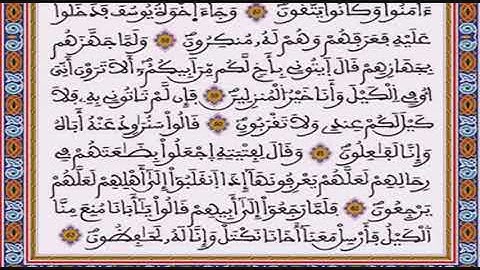 ءَامَنُواْ وَكَانُواْ يَتَّقُونَ وَجَآءَ اِخْوَةُ يُوسُفَ فَدَخَلُواْ
عَلَيْهِ فَعَرَفَهُمْ وَهُمْ لَهُۥ مُنكِرُونَ وَلَمَّا جَهَّزَهُم
بِجَهَازِهِمْ قَالَ اَيتُونِى بِأَخٍ لَّكُم مِّنَ اَبِيكُمُۥٓ أَلَا تَرَوْنَ أَنِّىٓ
أُوفِى اِ۬لْكَيْلَ وَأَنَا خَيْرُ اُ۬لْمُنزِلِينَ فَإِن لَّمْ تَاتُونِى بِهِۦ فَلَا
كَيْلَ لَكُمْ عِندِى وَلَا تَقْرَبُونِ قَالُواْ سَنُرَٰوِدُ عَنْهُ أَبَاهُ
وَإِنَّا لَفَٰعِلُونَ وَقَالَ لِفِتْيَتِهِ اِ۪جْعَلُواْ بِضَٰعَتَهُمْ فِى
رِحَالِهِمْ لَعَلَّهُمْ يَعْرِفُونَهَآ إِذَا اَ۪نقَلَبُوٓاْ إِلَىٰٓ أَهْلِهِمْ لَعَلَّهُمْ
يَرْجِعُونَ فَلَمَّا رَجَعُوٓاْ إِلَىٰٓ أَبِيهِمْ قَالُواْ يَٰٓأَبَانَا مُنِعَ مِنَّا
اَ۬لْكَيْلُ فَأَرْسِلْ مَعَنَآ أَخَانَا نَكْتَلْ وَإِنَّا لَهُۥ لَحَٰفِظُونَ